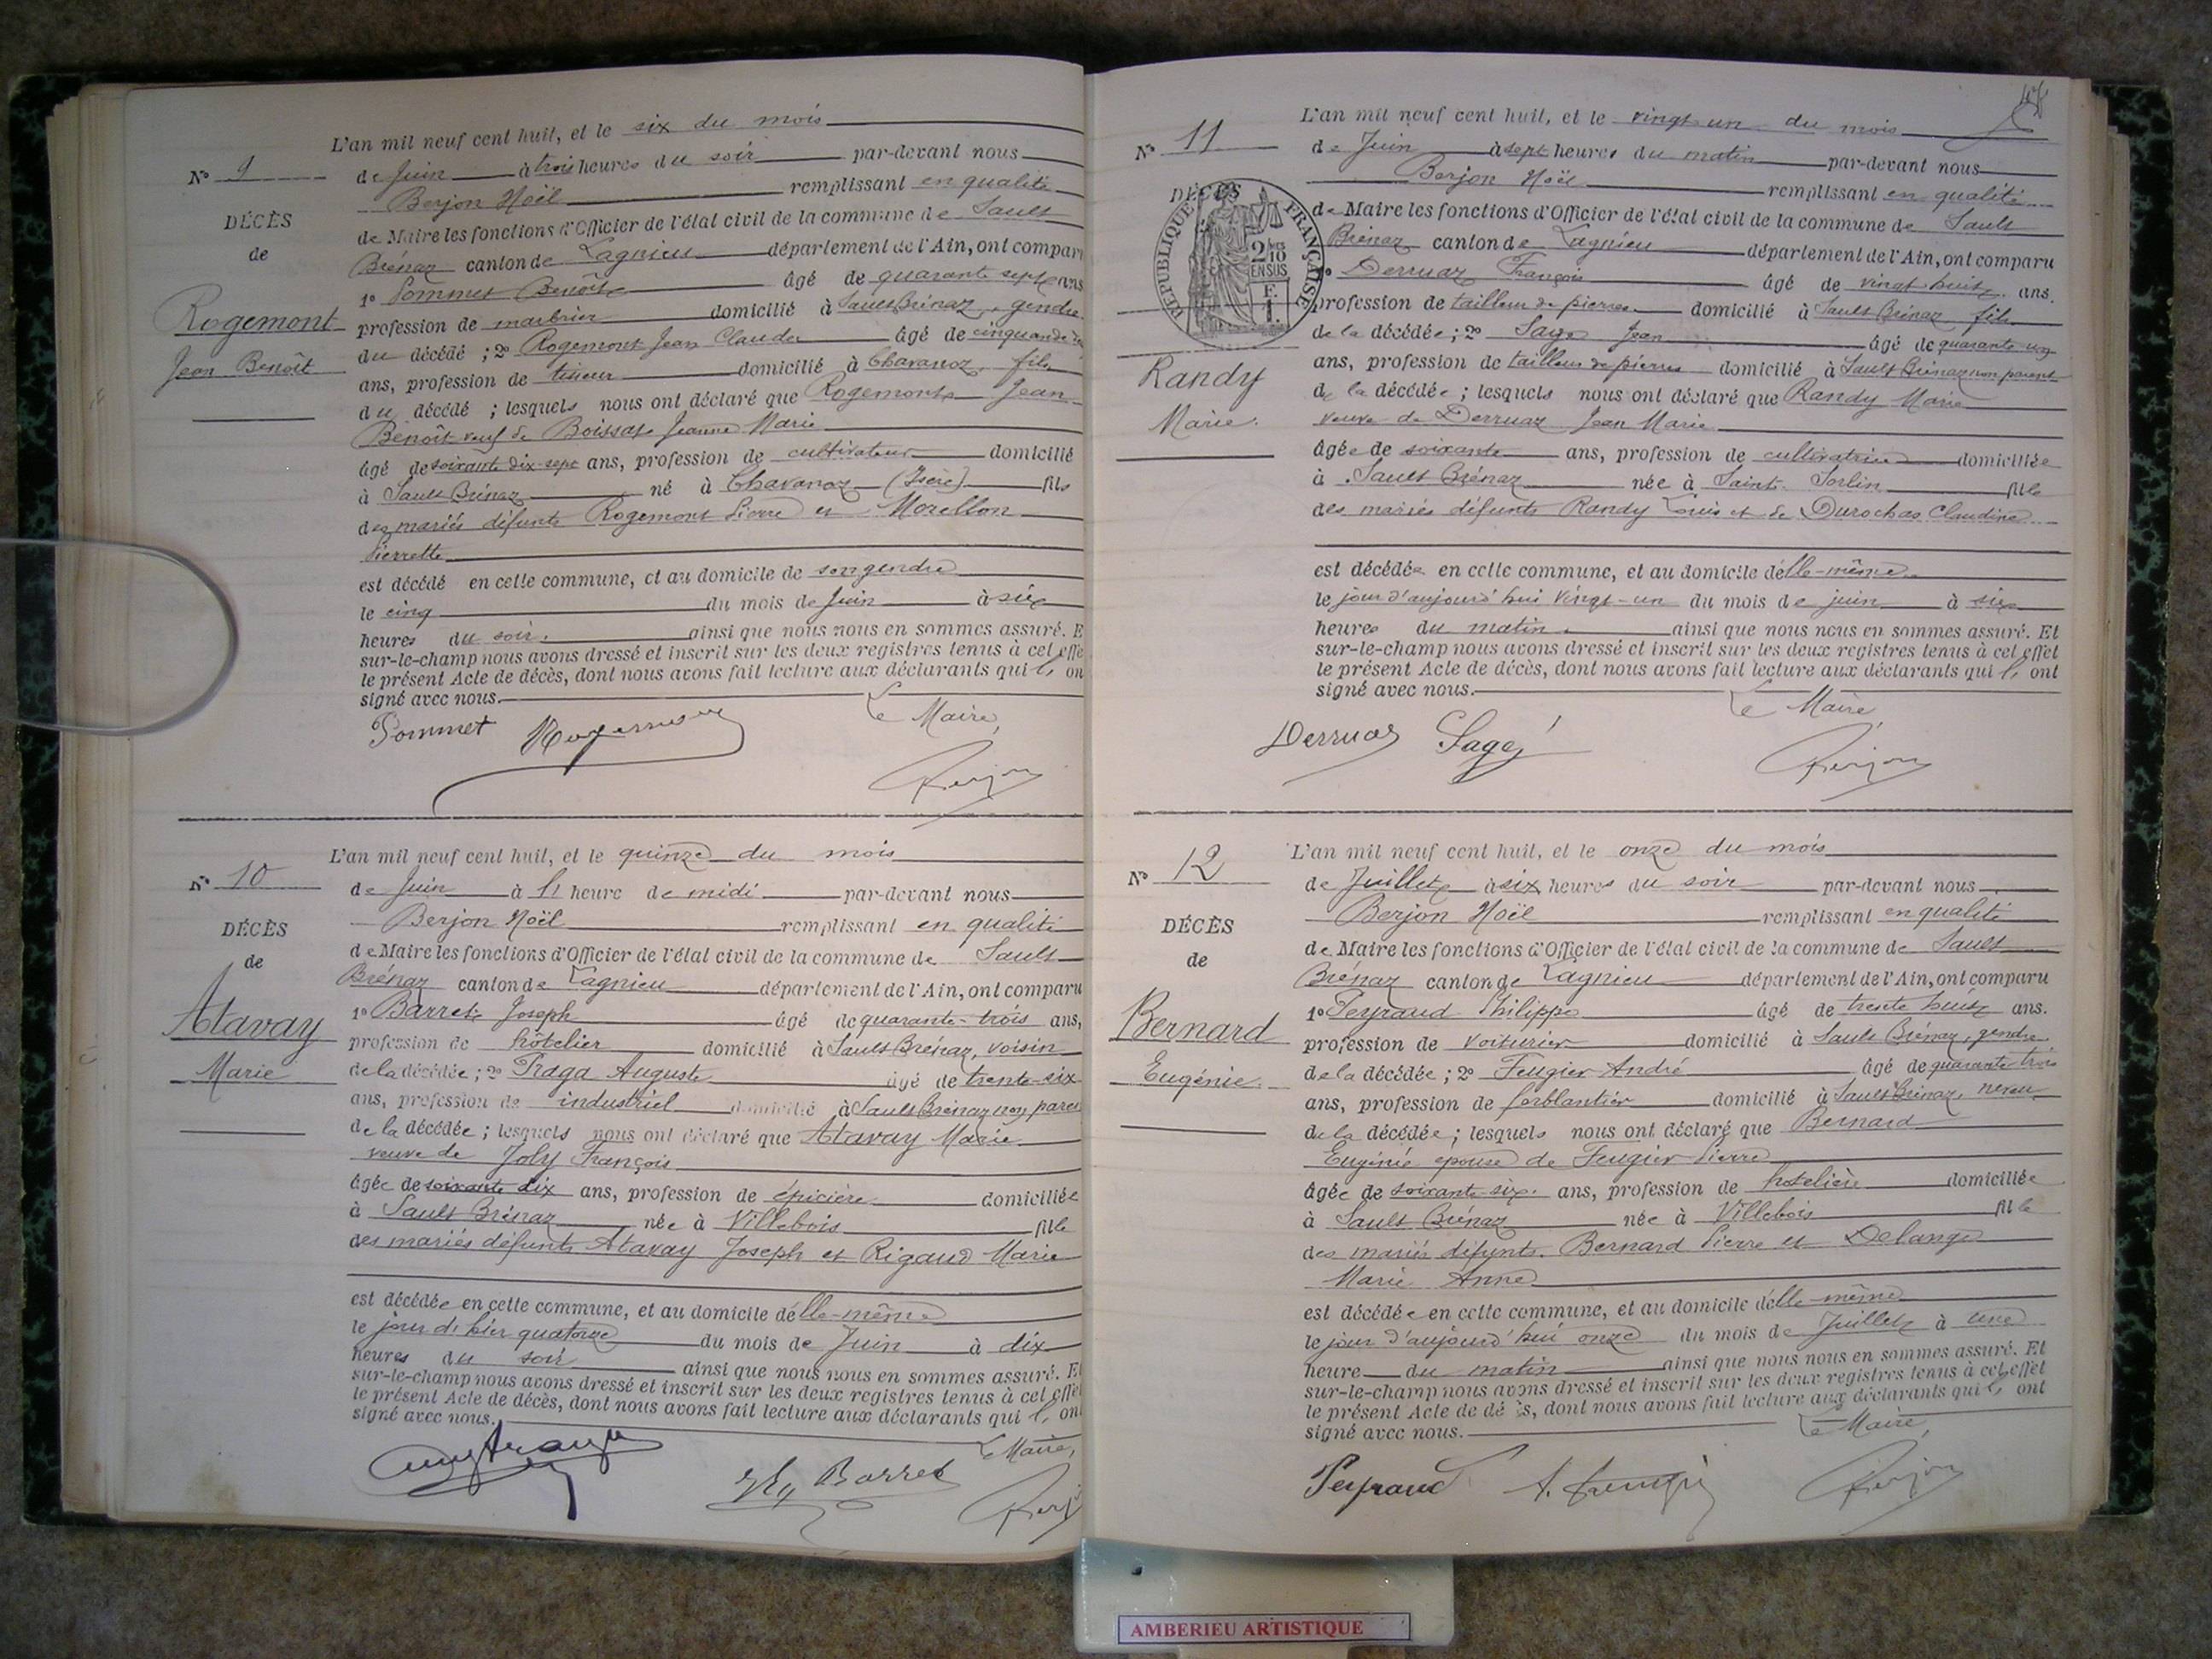 L'an mil neuf cent huit, et le six du mois
N° 9
de Juin à trois heures du soir par-devant nous
Berjon Noël remplissant en qualité
DÉCÈS
de Maire les fonctions d'Officier de l'état civil de la commune de Sault
de
Brénaz canton de Lagnieu département de l'Ain, ont comparu
1° Pommet Benoît âgé de quarante sept ans
Rogemont
profession de marbrier domicilié à Sault Brénaz, gendre
du décédé ; 2° Rogemont Jean Claude âgé de cinquante
Jean Benoît
ans, profession de tisseur domicilié à Chavanoz, fils
du décédé ; lesquels nous ont déclaré que Rogemont Jean
Benoît veuf de Boissat Jeanne Marie
âgé de soixante dix-sept ans, profession de cultivateur domicilié
à Sault Brénaz né à Chavanoz (Isère) fils
des mariés défunts Rogemont Pierre et Morellon
Pierrette
est décédé en cette commune, et au domicile de son gendre
le cinq du mois de Juin à six
heures du soir. ainsi que nous nous en sommes assuré. E
sur-le-champ nous avons dressé et inscrit sur les deux registres tenus à cet effe
le présent Acte de décès, dont nous avons fait lecture aux déclarants qui l' on
signé avec nous.
Le Maire,
Pommet Rogemont
Berjon
L'an mil neuf cent huit, et le quinze du mois
N° 10
de Juin à l1 heure de midi par-devant nous
Berjon Noël remplissant en qualité
DÉCÈS
de Maire les fonctions d'Officier de l'état civil de la commune de Sault
de
Brénaz canton de Lagnieu département de l'Ain, ont comparu
1° Barret Joseph âgé de quarante-trois ans,
Atavay
profession de hôtelier domicilié à Sault Brénaz, voisin
Marie
de la décédée ; 2° Praga Auguste âgé de trente-six
ans, profession de industriel domicilié à Sault Brénaz non paren
de la décédée ; lesquels nous ont déclaré que Atavay Marie
veuve de Joly François
âgée de soixante dix ans, profession de épicière domiciliée
à Sault Brénaz née à Villebois fille
des mariés défunts Atavay Joseph et Rigaud Marie
est décédée en cette commune, et au domicile d'elle-même
le jour d'hier quatorze du mois de Juin à dix
heures du soir ainsi que nous nous en sommes assuré. Et
sur-le-champ nous avons dressé et inscrit sur les deux registres tenus à cet effet
le présent Acte de décès, dont nous avons fait lecture aux déclarants qui l' ont
signé avec nous.
Le Maire,
Barret
Berj
L'an mil neuf cent huit, et le vingt un du mois
N° 11
de Juin à sept heures du matin par-devant nous
Berjon Noël remplissant en qualité
DÉCÈS
RÉPUBLIQUE FRANÇAISE
2/10 EN SUS
F. 1.
de Maire les fonctions d'Officier de l'état civil de la commune de Sault
Brénaz canton de Lagnieu département de l'Ain, ont comparu
1° Derruaz François âgé de vingt huit ans.
profession de tailleur de pierres domicilié à Sault Brénaz fils
de la décédée ; 2° Sage Jean âgé de quarante un
ans, profession de tailleur de pierres domicilié à Sault Brénaz non parent
Randy
de la décédée ; lesquels nous ont déclaré que Randy Marie
Marie.
veuve de Derruaz Jean Marie
âgée de soixante ans, profession de cultivatrice domiciliée
à Sault Brénaz née à Saint-Sorlin fille
des mariés défunts Randy Louis et de Durochas Claudine
est décédée en cette commune, et au domicile d'elle-même
le jour d'aujourd'hui vingt-un du mois de juin à six
heures du matin. ainsi que nous nous en sommes assuré. Et
sur-le-champ nous avons dressé et inscrit sur les deux registres tenus à cet effet
le présent Acte de décès, dont nous avons fait lecture aux déclarants qui l' ont
signé avec nous.
Le Maire
Derruaz Sage
Berjon
L'an mil neuf cent huit, et le onze du mois
N° 12
de Juillet à six heures du soir par-devant nous
Berjon Noël remplissant en qualité
DÉCÈS
de Maire les fonctions d'Officier de l'état civil de la commune de Sault
de
Brénaz canton de Lagnieu département de l'Ain, ont comparu
1° Peyraud Philippe âgé de trente huit ans.
Bernard
profession de voiturier domicilié à Sault Brénaz, gendre
Eugénie.
de la décédée ; 2° Feugier André âgé de quarante trois
ans, profession de ferblantier domicilié à Sault Brénaz, neveu
de la décédée ; lesquels nous ont déclaré que Bernard
Eugénie épouse de Feugier Pierre
âgée de soixante-six. ans, profession de hotelière domiciliée
à Sault Brénaz née à Villebois fille
des mariés défunts. Bernard Pierre et Delange
Marie Anne
est décédée en cette commune, et au domicile d'elle-même
le jour d'aujourd'hui onze du mois de Juillet à une
heure du matin ainsi que nous nous en sommes assuré. Et
sur-le-champ nous avons dressé et inscrit sur les deux registres tenus à cet effet
le présent Acte de décès, dont nous avons fait lecture aux déclarants qui l' ont
signé avec nous.
Le Maire,
Peyraud A. Feugier
Berjon
AMBERIEU ARTISTIQUE